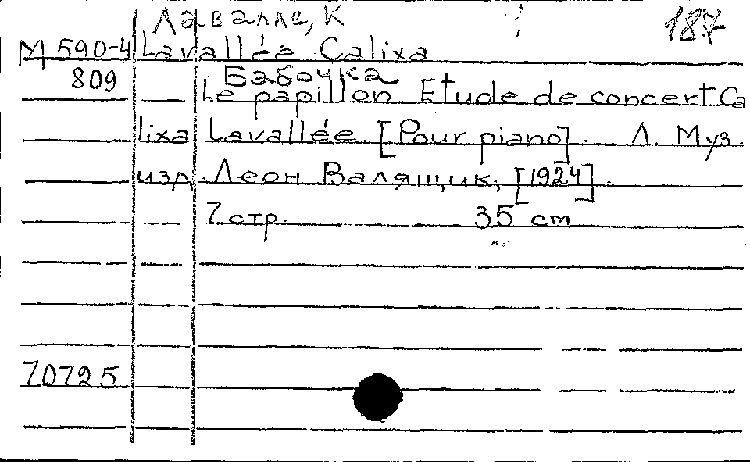 Лавалле, К
187
М 590-4 Lavallée Calixa
809 Бабочка
Le papillon Etude de concert Ca
lixa Lavallée [Pour piano]. Л. Муз.
изд. Леон Валящик, [1924].
7 стр. 35 cm
70725